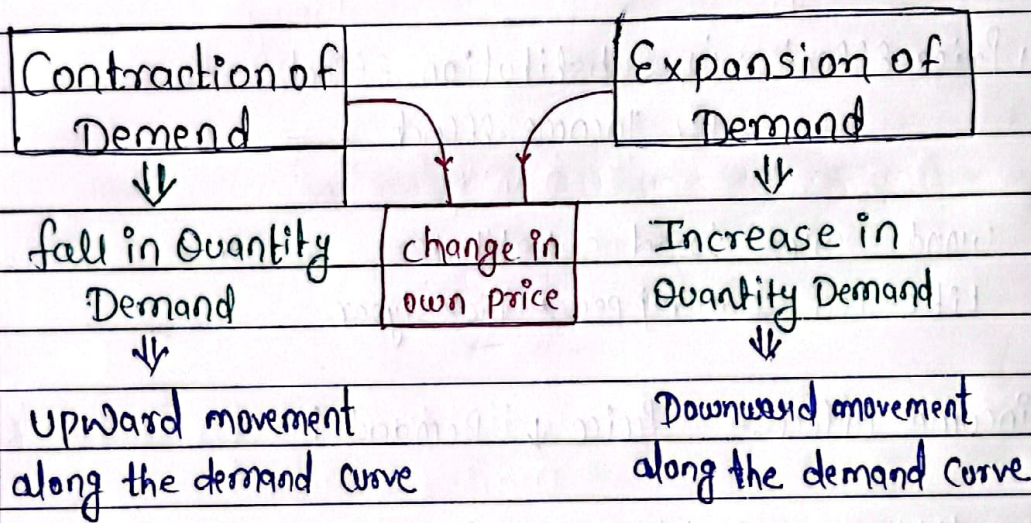 Contraction of
Demend
fall in Quantity
Demand
upward movement
along the demand curve
change in
own price
Expansion of
Demand
Increase in
Quantity Demand
Downward movement
along the demand curve